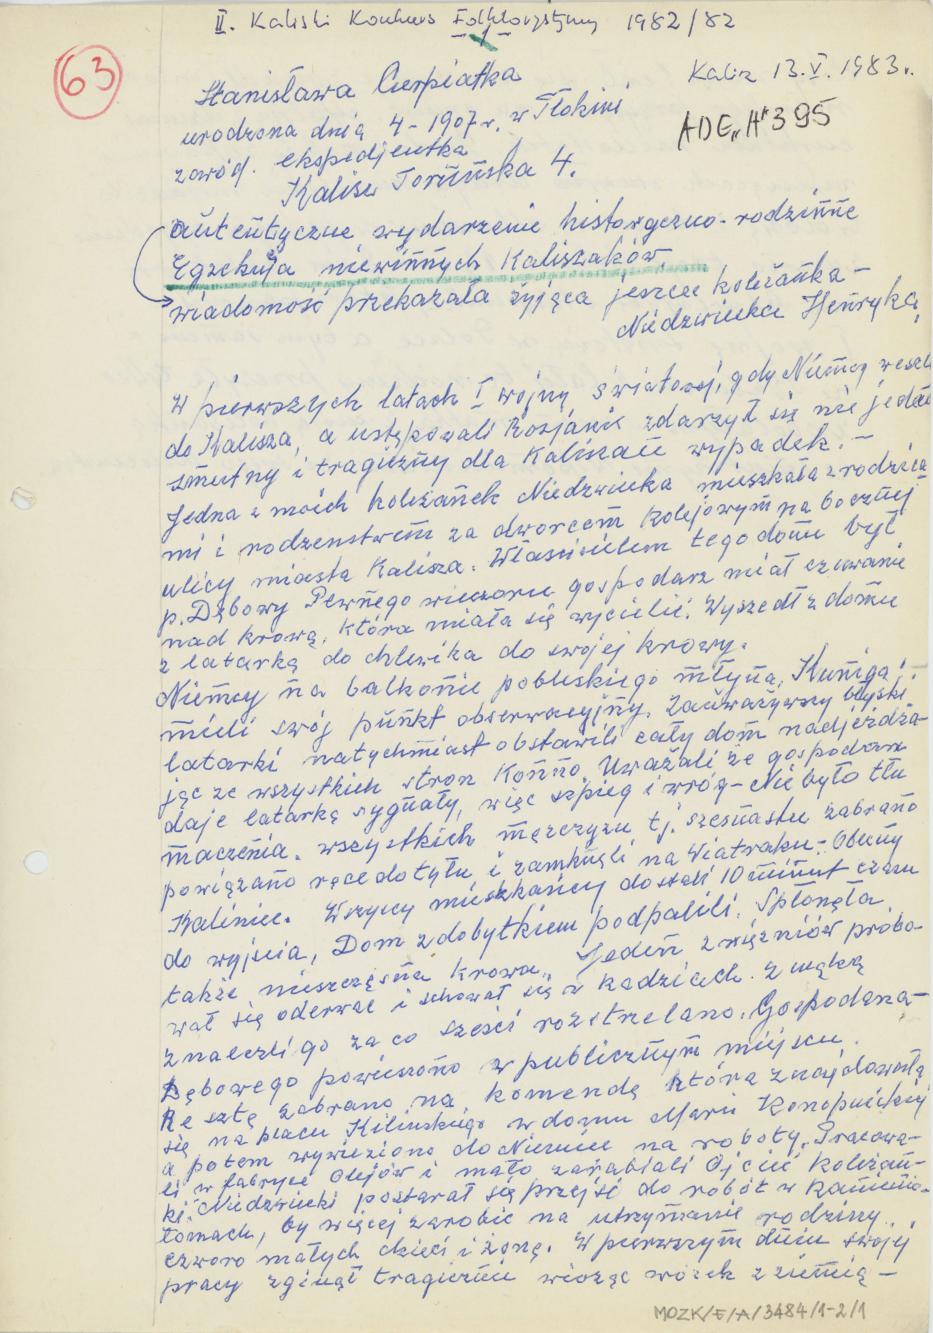 II. Kaliski Konkurs Folklorystyczny 1982/82
63
Kalisz 13.V.1983r.
ADE „A" 395
Stanisława Cierpiatka
urodzona dnia 4-1907r. w Tłokini
zawód. ekspedjentka
Kalisz Toruńska 4.
autentyczne wydarzenie historyczno-rodzinne
Egzekucja niewinnych Kaliszaków.
wiadomość przekazała żyjąca jeszcze koleżanka –
Niedzwiecka Henryka,
W pierwszych latach I wojny Światowej, gdy Niemcy weszli
do Kalisza, a ustępowali Rosjanie zdarzył się nie jeden
smutny i tragiczny dla Kaliszan wypadek. –
Jedna z moich koleżanek Niedzwiecka mieszkała z rodzica
mi i rodzenstwem za dworcem kolejowym na bocznej
ulicy miasta Kalisza. Właścicielem tego domu był
p. Dębowy Pewnego wieczoru gospodarz miał czuwanie
nad krową, która miała się wycielić. Wyszedł z domu
z latarką do chlewika do swojej krowy.
Niemcy na balkonie pobliskiego młyna, Kuniga,
mieli swój punkt obserwacyjny. Zauważywszy błyski
latarki natychmiast obstawili cały dom nadjeżdża-
jąc ze wszystkich stron konno. Uważali że gospodarz
daje latarką sygnały, więc szpieg i wróg – Nie było tłu
maczenia. wszystkich męzczyzn tj. szesnastu zabrano
powiązano ręce do tyłu i zamknęli na Wiatraku. Obecny
Kaliniec. Wszyscy mieszkańcy dostali 10 minut czasu
do wyjścia, Dom z dobytkiem podpalili. Spłonęła
także nieszczęsna krowa. Jeden z więźniów próbo-
wał się oderwać i schował się w kadziach z mąką
znaleźli go za co sześci rozstrzelano. Gospodarza –
Dębowego powieszono w publicznym miejscu.
Resztę zabrano na komendę która znajdowała
się na placu Kilińskiego w domu Marii Konopnickiej
a potem wywieziono do Niemiec na roboty. Pracowa-
li w fabryce olejów i mało zarabiali Ojciec koleżan-
ki Niedzwiecki postarał się przejść do robót w kamienio-
łomach, by więcej zarobić na utrzymanie rodziny
czworo małych dzieci i żonę. W pierwszym dniu swojej
pracy zginął tragicznie wioząc wózek z ziemią –
MOZK/E/A/3484/1-2/1